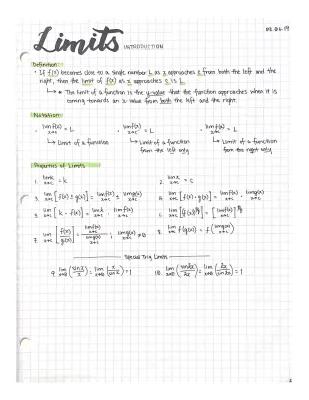 Limits INTRODUCTION
Definition
• If f(x) becomes close to a single number L as x approaches c from both the left and the
right, then the limit of f(x) as x approaches c is L.
↳ * The limit of a function is the y-value that the function approaches when it is
coming towards an x value from both the left and the right.
Notation
• lim x→c f(x) = L • lim x→c f(x) = L • lim x→c f(x) = L
↳ Limit of a function ↳ Limit of a function ↳ Limit of a function
from the left only from the right only
Properties of Limits
1. lim x→c k = k 2. lim x→c x = c
3. lim x→c [f(x) ± g(x)] = lim x→c f(x) ± lim x→c g(x) 4. lim x→c [f(x) · g(x)] = lim x→c f(x) · lim x→c g(x)
5. lim x→c [k · f(x)] = lim x→c k · lim x→c f(x)
7. lim x→c [f(x)/g(x)] = lim x→c f(x) / lim x→c g(x) ; lim x→c g(x) ≠ 0 8. lim x→c f(g(x)) = f(lim x→c g(x))
Special Trig Limits
9. lim x→0 (sinx/x) = lim x→0 (x/sinx) = 1 10. lim x→0 (sin2x/2x) = lim x→0 (2x/sin2x) = 1